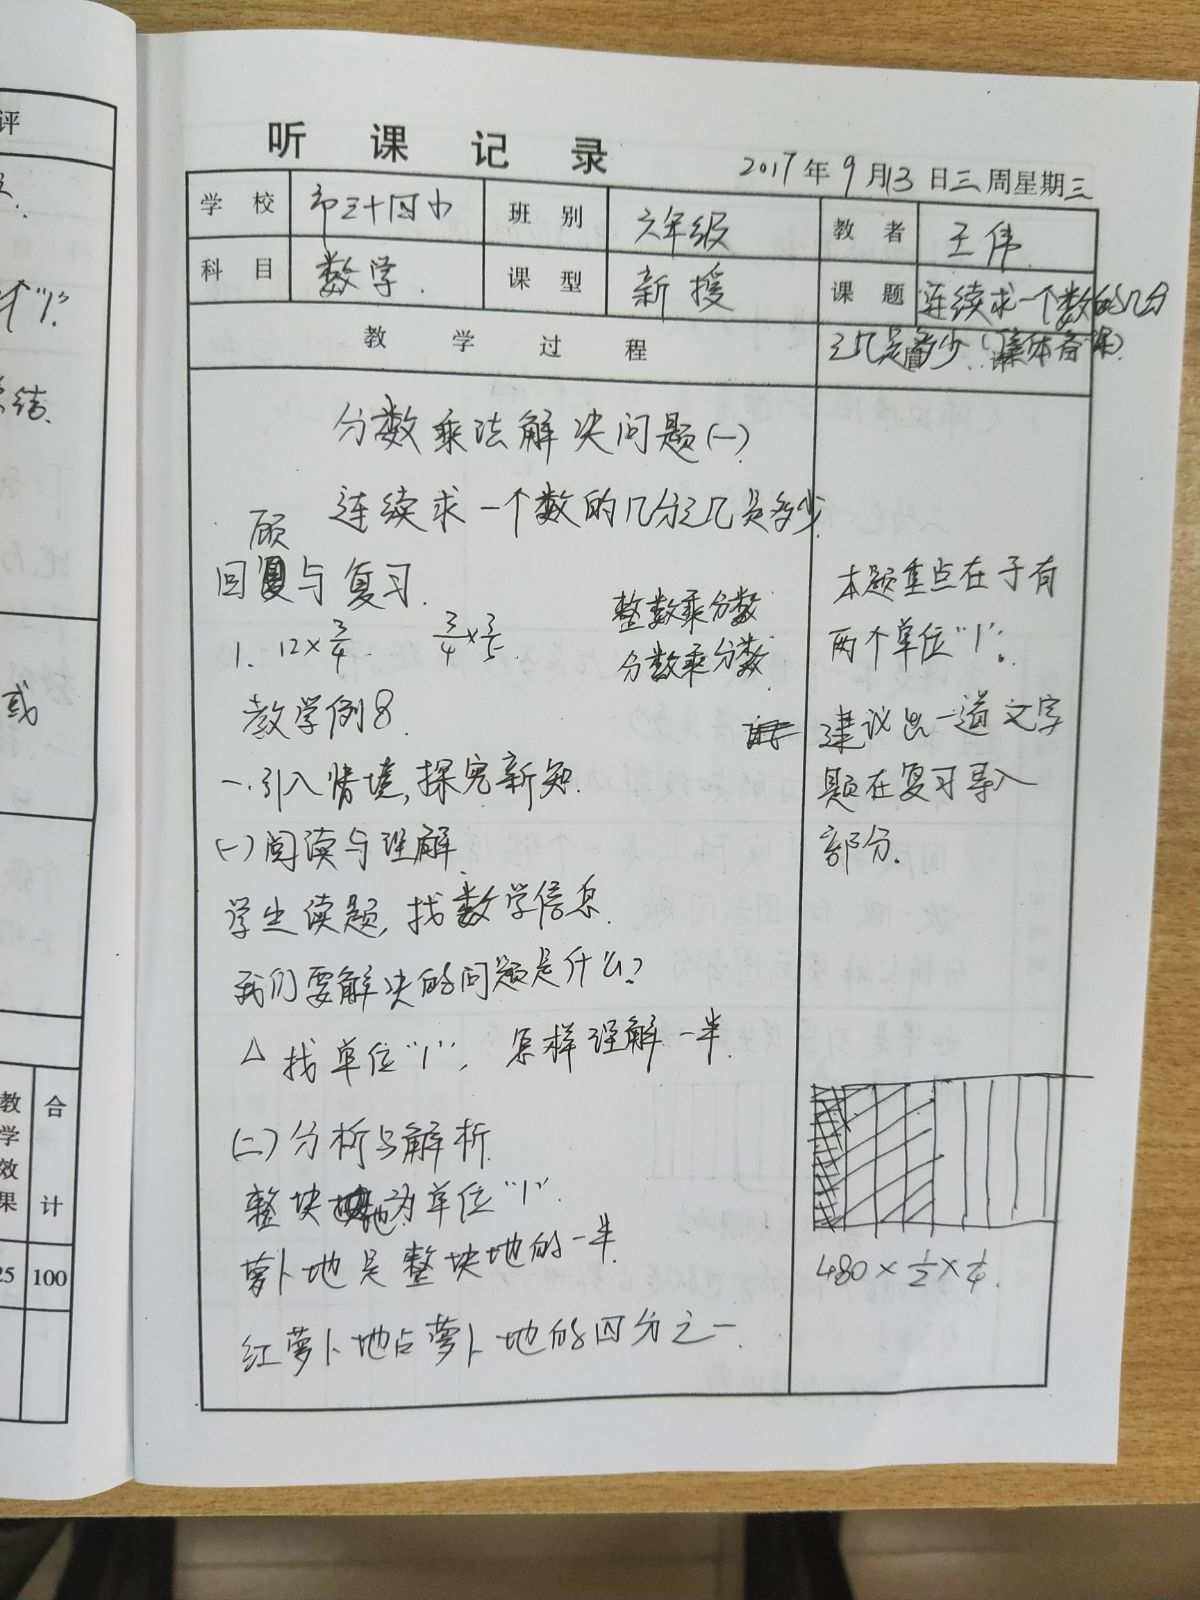 听课记录
2017年9月13日三周星期三
学校 市三十四中 班别 六年级 教者 王伟
科目 数学. 课型 新授 课题 连续求一个数的几分
之几是多少.(集体备课)
教学过程
分数乘法解决问题(一)
连续求一个数的几分之几是多少
回顾与复习.
1. 12×3/4. 3/4×3/5.
整数乘分数
分数乘分数.
教学例8
一.引入情境,探究新知.
(一)阅读与理解
学生读题,找数学信息.
我们要解决的问题是什么?
△找单位"1", 怎样理解一半.
(二)分析与解析.
整块地为单位"1".
萝卜地是整块地的一半
红萝卜地占萝卜地的四分之一.
本题重点在于有
两个单位"1".
建议出一道文字
题在复习导入
部分.
480×1/2×1/4.
评
"1".
总结.
或
教学效果
合计
25
100